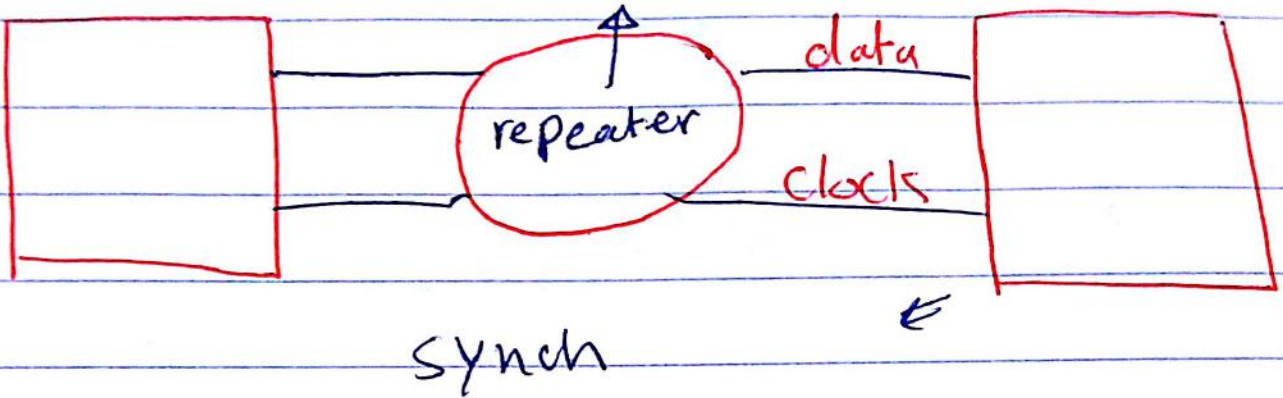 data
repeater
Clock
synch